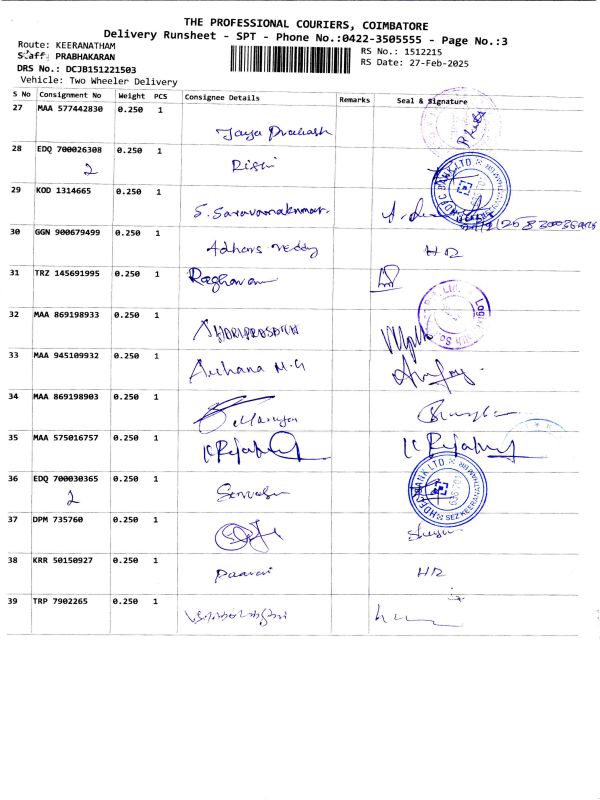 THE PROFESSIONAL COURIERS, COIMBATORE
Delivery Runsheet - SPT - Phone No.:0422-3505555 - Page No.:3
Route: KEERANATHAM
Staff: PRABHAKARAN
DRS No.: DCJB151221503
Vehicle: Two Wheeler Delivery
RS No.: 1512215
RS Date: 27-Feb-2025
S No Consignment No Weight PCS Consignee Details Remarks Seal & Signature
27 MAA 577442830 0.250 1
Jaya Prakash
28 EDQ 700026308 0.250 1
2 Rishi
HDFC BANK LTD.
29 KOD 1314665 0.250 1
S. Saravanakumar
30 GGN 900679499 0.250 1
Adhars reddy HR
31 TRZ 145691995 0.250 1
Raghavan
32 MAA 869198933 0.250 1
HARIPRASATH
33 MAA 945109932 0.250 1
Archana M.G
34 MAA 869198903 0.250 1
35 MAA 575016757 0.250 1
36 EDQ 700030365 0.250 1
2
HDFC BANK LTD. SEZ KEERANATHAM
37 DPM 735760 0.250 1
38 KRR 50150927 0.250 1
Paavai HR
39 TRP 7902265 0.250 1